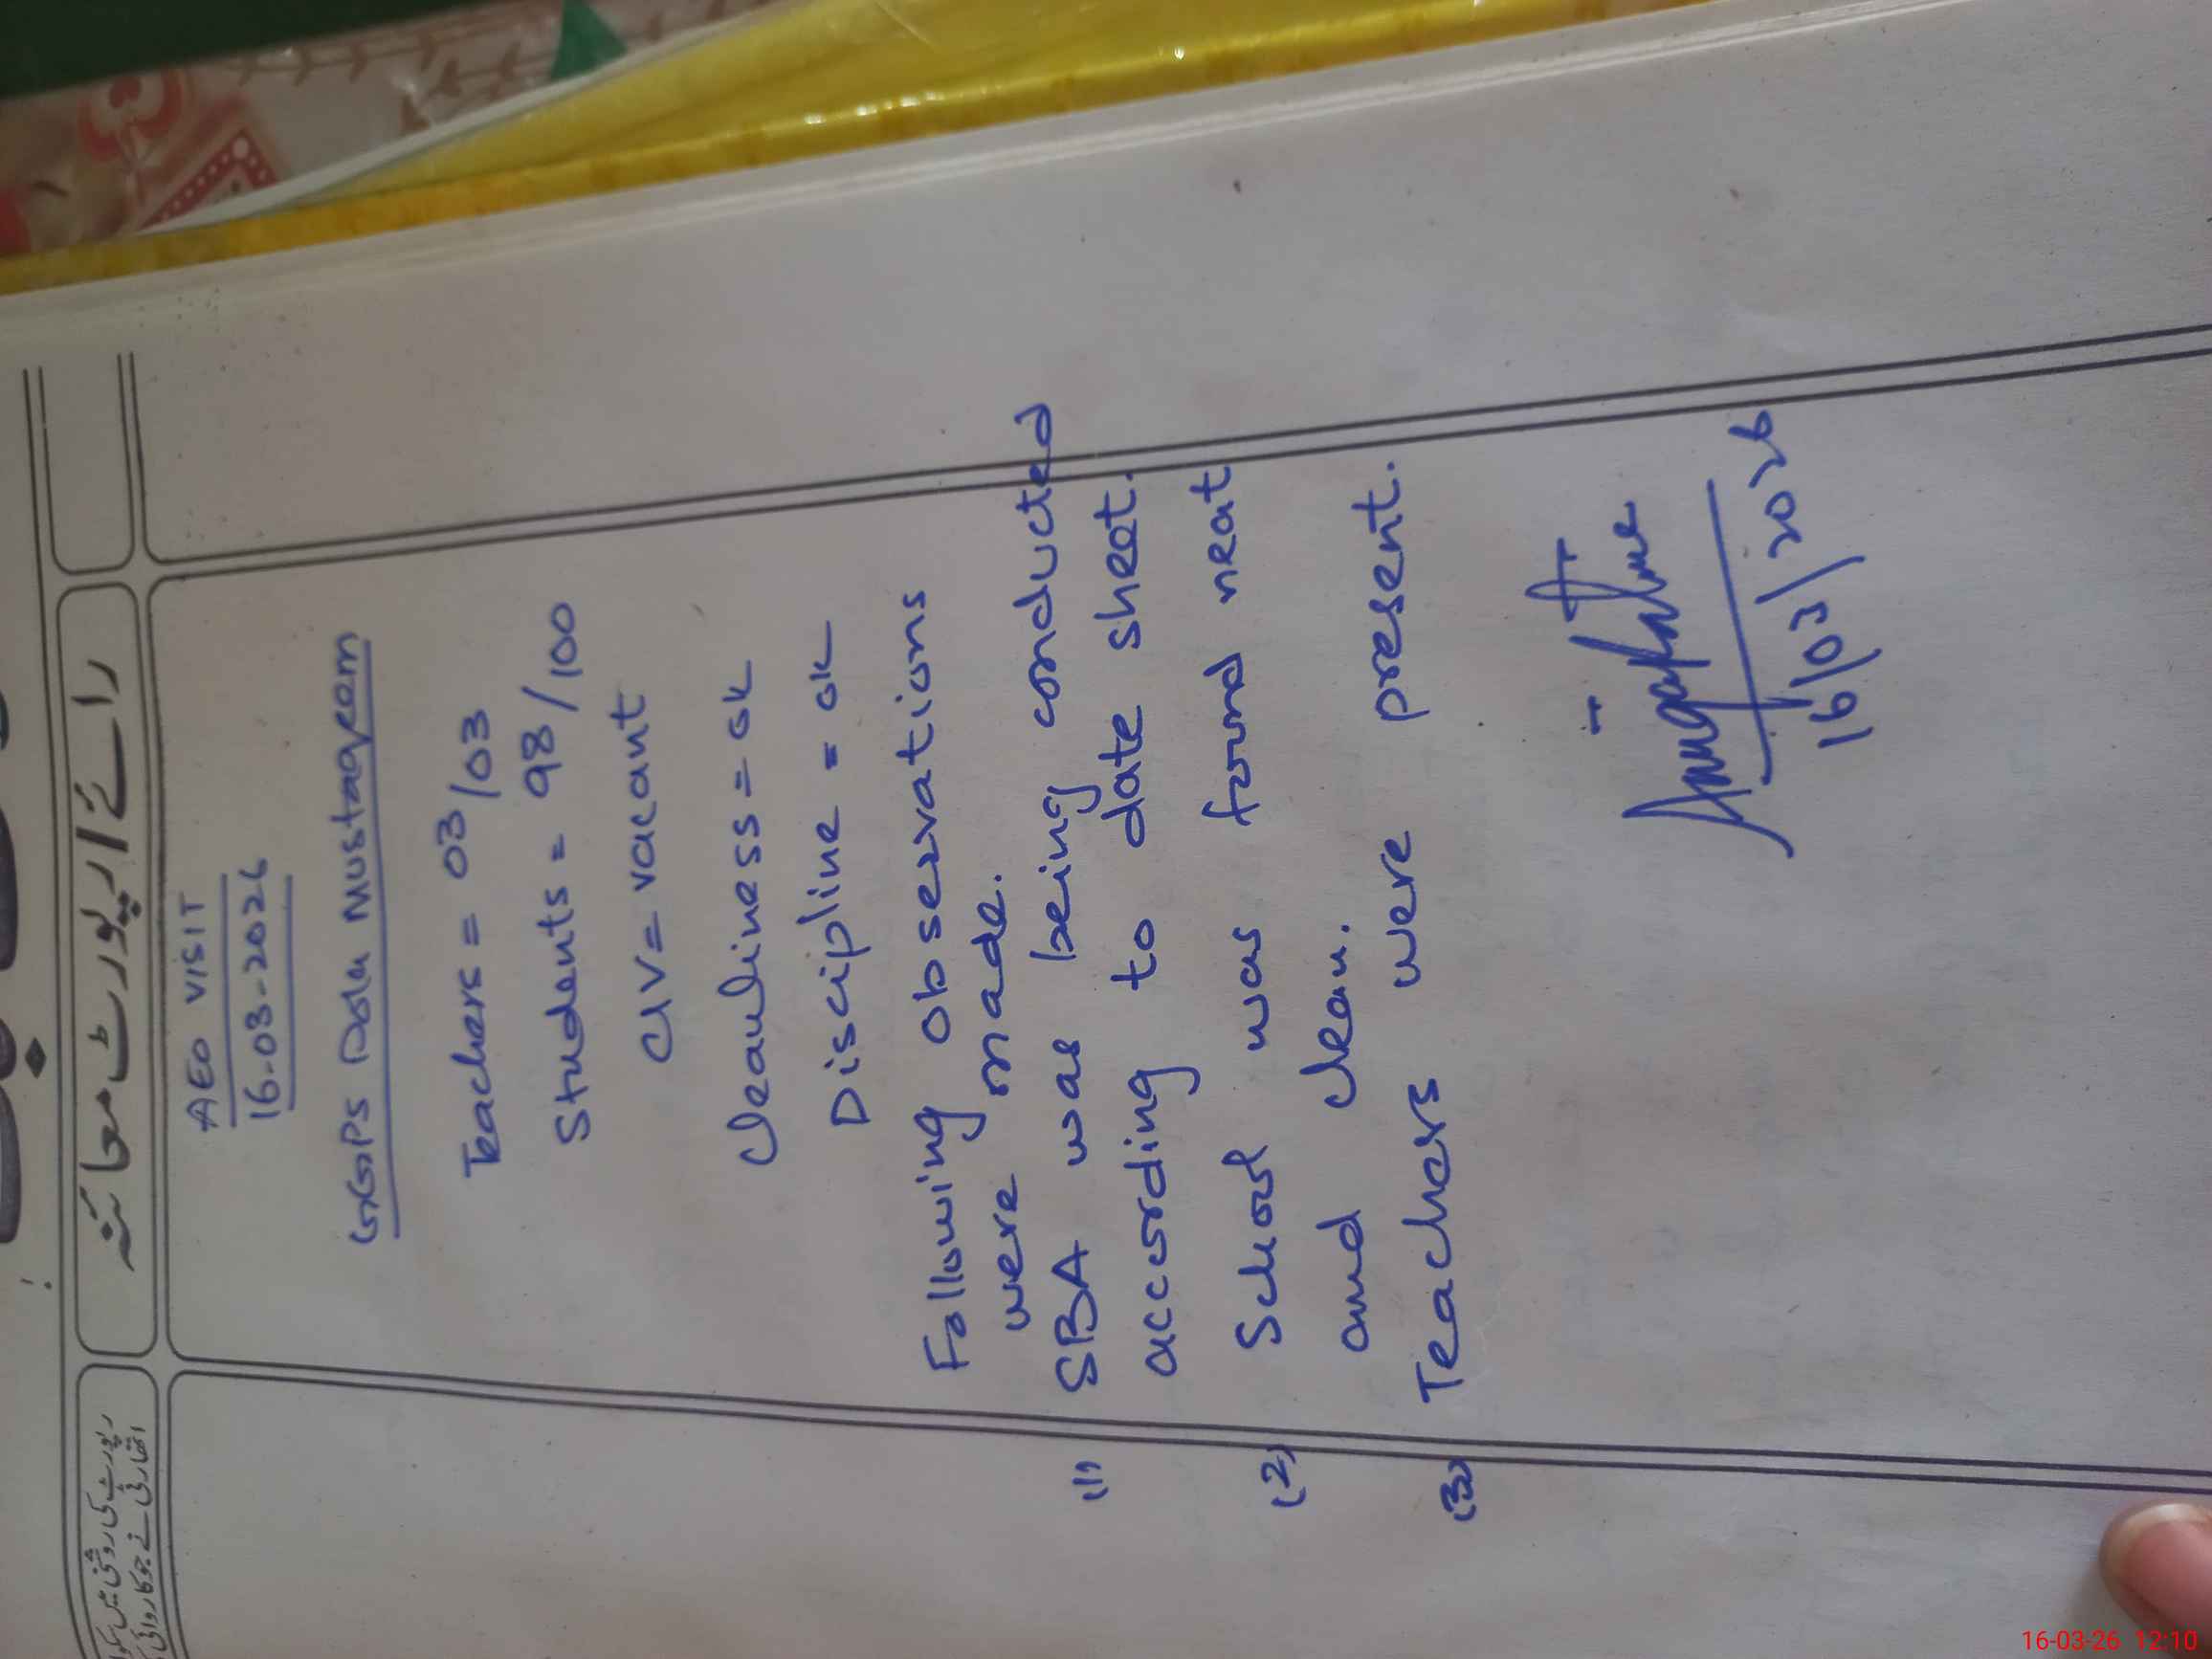 رائے / رپورٹ معائنہ
رپورٹ کی روشنی میں
اتھارٹی نے جو کاروائی
AEO VISIT
16-03-2026
GGPS Dola Mustaqeem
Teachers = 03/03
Students = 98/100
CIV = vacant
Cleanliness = ok
Discipline = ok
Following observations
were made.
(1) SBA was being conducted
according to date sheet.
(2) School was found neat
and clean.
(3) Teachers were present.
16/03/2026
16-03-26 12:10